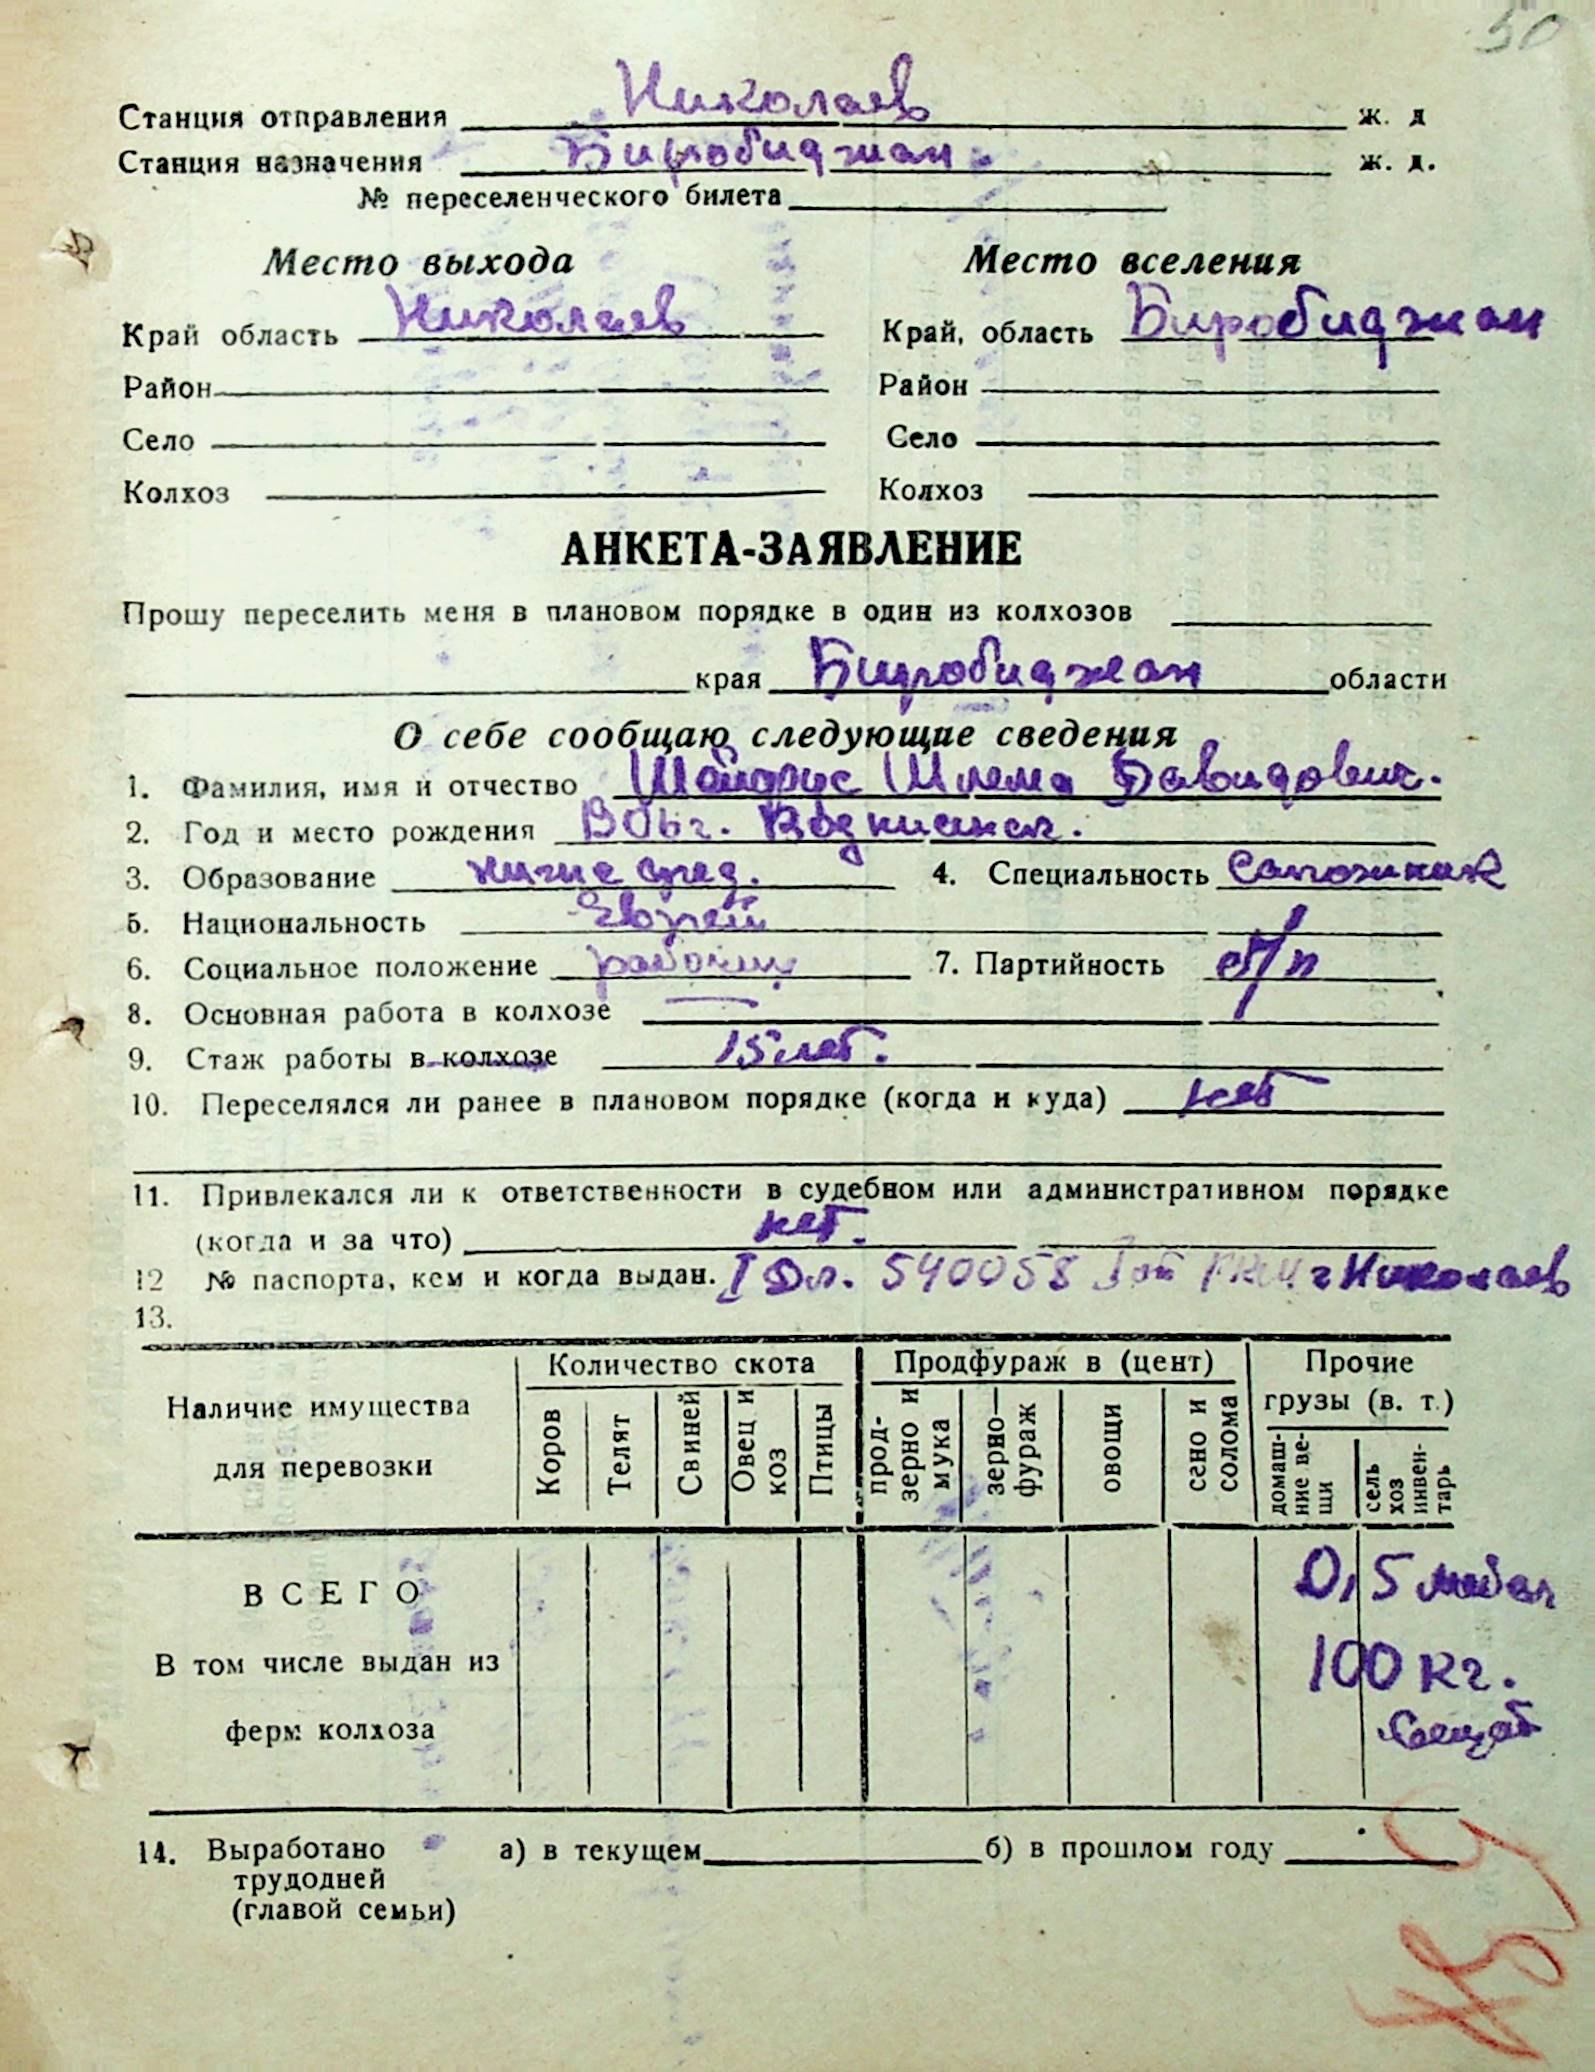 50
Станция отправления Николаев ж. д
Станция назначения Биробиджан ж. д.
№ переселенческого билета
Место выхода Место вселения
Край область Николаев Край, область Биробиджан
Район Район
Село Село
Колхоз Колхоз
АНКЕТА-ЗАЯВЛЕНИЕ
Прошу переселить меня в плановом порядке в один из колхозов
края Биробиджан области
О себе сообщаю следующие сведения
1. Фамилия, имя и отчество Шлема Давидович.
2. Год и место рождения 1906г.
3. Образование низше сред. 4. Специальность Сапожник
5. Национальность Еврей
6. Социальное положение рабочий 7. Партийность б/п
8. Основная работа в колхозе —
9. Стаж работы в колхозе 15 лет.
10. Переселялся ли ранее в плановом порядке (когда и куда) нет
11. Привлекался ли к ответственности в судебном или административном порядке
(когда и за что) нет.
12 № паспорта, кем и когда выдан. I 540058 г Николаев
13.
Наличие имущества для перевозки Количество скота Продфураж в (цент) Прочие грузы (в. т.)
Коров Телят Свиней Овец и коз Птицы прод-зерно и мука зерно—фураж овощи сено и солома домаш-ние ве-щи сель хоз инвен-тарь
ВСЕГО 0,5
В том числе выдан из 100 кг.
ферм колхоза вещей
14. Выработано а) в текущем б) в прошлом году
трудодней
(главой семьи)